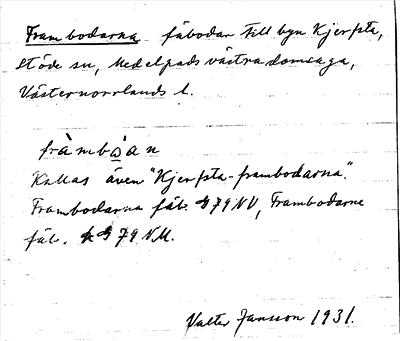 Frambodarna fäbodar till byn Kjerfsta,
Stöde sn, Medelpads västra domsaga,
Västernorrlands l.
fràmbòan
Kallas även "Kjerfsta-frambodarna".
Frambodarna fäb. § 79 NV, Frambodarne
fäb. § 79 NM.
Valter Jansson 1931.